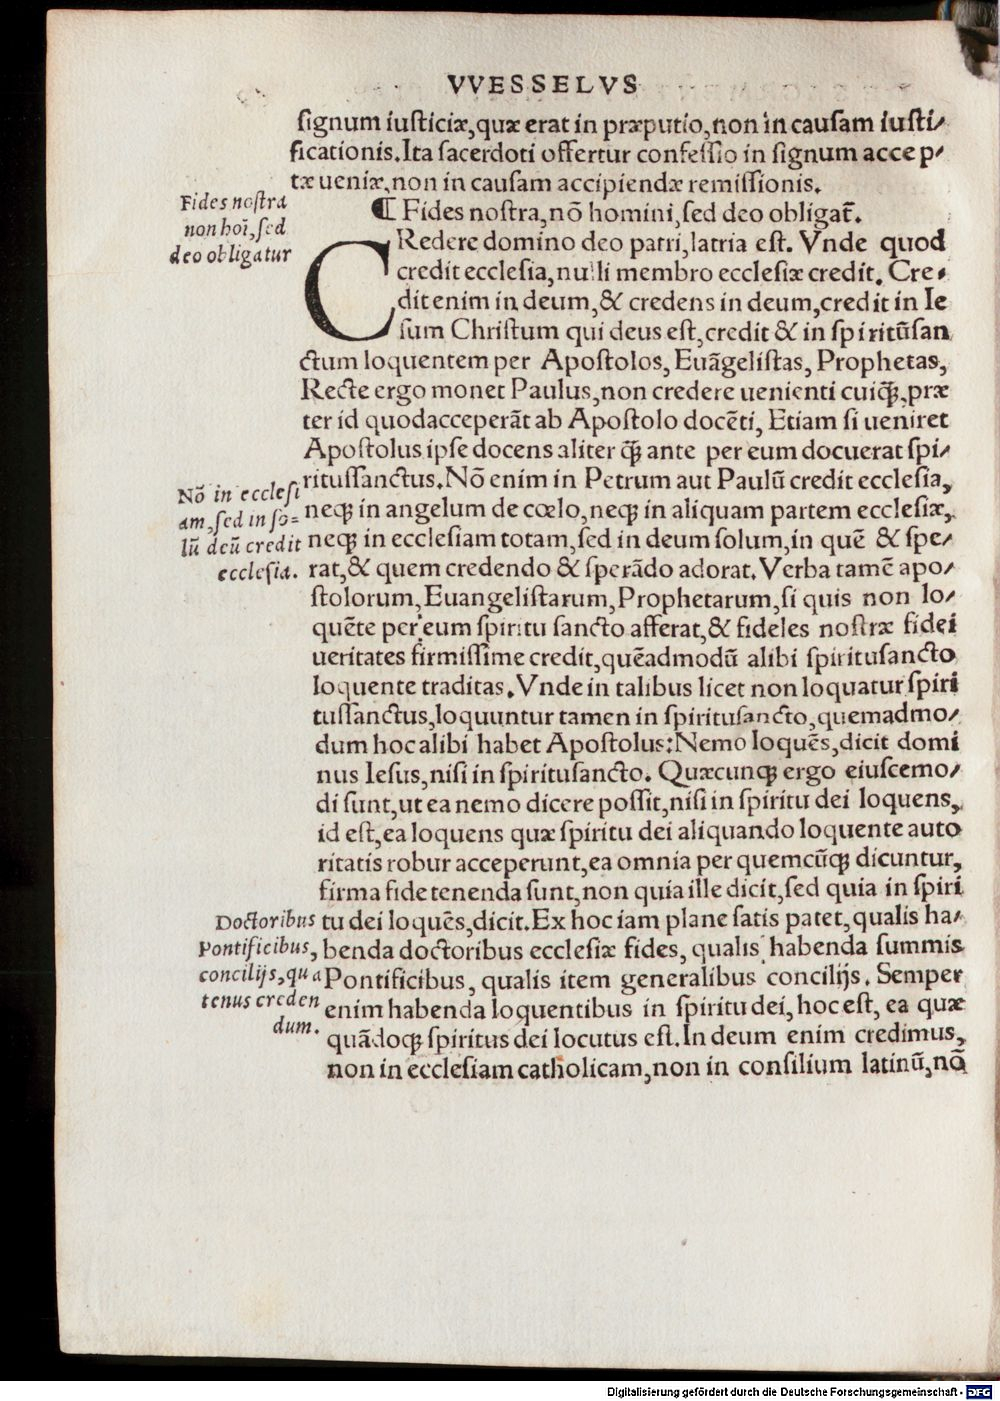 VVESSELVS
signum iusticiæ,quæ erat in præputio,non in causam iusti/
ficationis.Ita sacerdoti offertur confessio in signum accep/
tæ ueniæ,non in causam accipiendæ remissionis.
Fides nostra
non hoī,sed
deo obligatur
¶ Fides nostra,nō homini,sed deo obligat̄.
CRedere domino deo patri,latria est. Vnde quod
credit ecclesia,nulli membro ecclesiæ credit. Cre/
dit enim in deum,& credens in deum,credit in Ie
sum Christum qui deus est,credit & in spiritūsan
ctum loquentem per Apostolos, Euāgelistas, Prophetas,
Recte ergo monet Paulus,non credere uenienti cuiꝙ̄,præ
ter id quodacceperāt ab Apostolo docēti, Etiam si ueniret
Apostolus ipse docens aliter ꝙ̄ ante per eum docuerat spi/
ritussanctus.Nō enim in Petrum aut Paulū credit ecclesia,
Nō in ecclesi
am,sed in so=
lū deū credit
ecclesia.
neqꝫ in angelum de cœlo,neqꝫ in aliquam partem ecclesiæ,
neqꝫ in ecclesiam totam,sed in deum solum,in quē & spe/
rat,& quem credendo & sperādo adorat.Verba tamē apo/
stolorum,Euangelistarum,Prophetarum,si quis non lo/
quēte per eum spiritu sancto afferat,& fideles nostræ fidei
ueritates firmissime credit,quēadmodū alibi spiritusancto
loquente traditas.Vnde in talibus licet non loquatur spiri
tussanctus,loquuntur tamen in spiritusancto,quemadmo/
dum hoc alibi habet Apostolus:Nemo loquēs,dicit domi
nus Iesus,nisi in spiritusancto. Quæcunqꝫ ergo eiuscemo/
di sunt,ut ea nemo dicere possit,nisi in spiritu dei loquens,
id est,ea loquens quæ spiritu dei aliquando loquente auto
ritatis robur acceperunt,ea omnia per quemcūqꝫ dicuntur,
firma fide tenenda sunt,non quia ille dicit,sed quia in spiri
tu dei loquēs,dicit.Ex hoc iam plane satis patet,qualis ha/
Doctoribus
Pontificibus,
concilijs,qua
tenus creden
dum.
benda doctoribus ecclesiæ fides, qualis habenda summis
Pontificibus, qualis item generalibus concilijs. Semper
enim habenda loquentibus in spiritu dei, hoc est, ea quæ
quādoqꝫ spiritus dei locutus est.In deum enim credimus,
non in ecclesiam catholicam,non in consilium latinū,nō
Digitalisierung gefördert durch die Deutsche Forschungsgemeinschaft - DFG